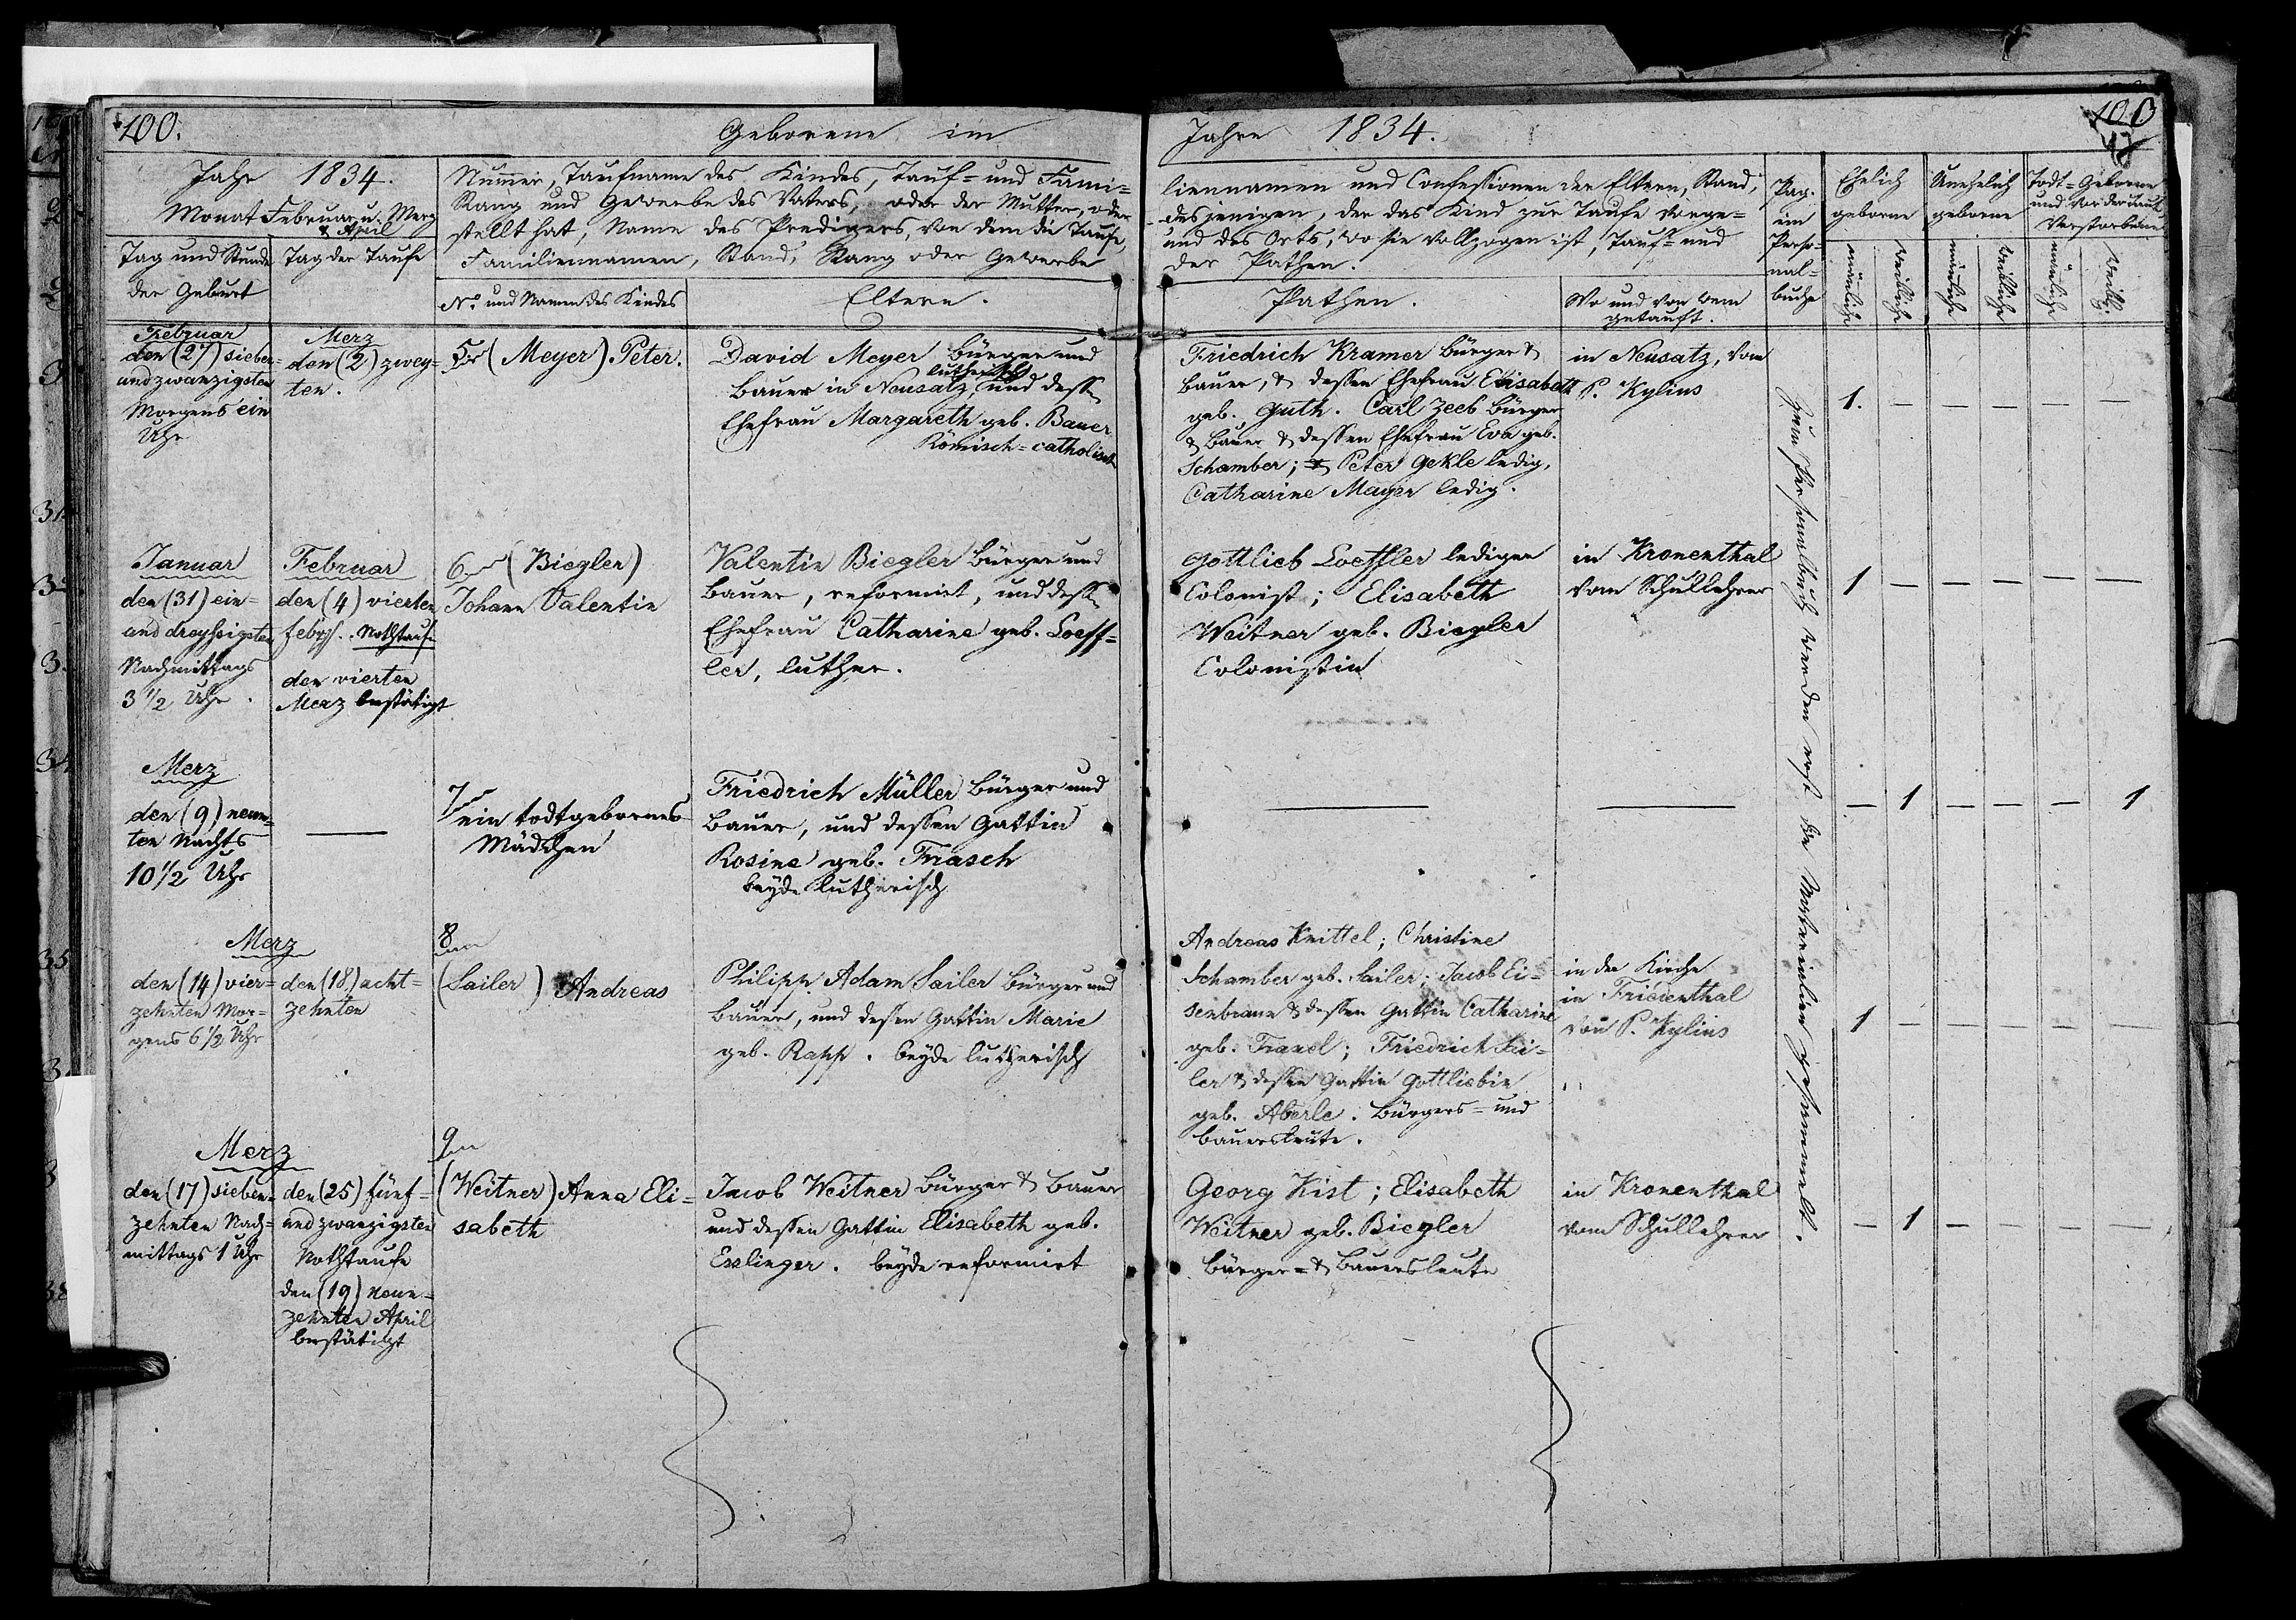 100.
Geborene im
Jahr 1834.
Monat Februar u. Merz
& April
Nummer, Taufname des Kindes, Tauf- und Fami-
Rang und Gewerbe des Vaters, oder der Mutter, oder
stellt hat, Name des Predigers, von dem die Taufe,
Familiennamen, Stand, Rang oder Gewerbe
Tag und Stunde
der Geburt
Tag der Taufe
No und Namen des Kindes
Eltern.
Februar
den (27) sieben-
undzwanzigsten
Morgens ein
Uhr
Merz
den (2) zwey-
ten.
5 (Meyer) Peter.
David Meyer Bürger und
lutherisch
Bauer in Neusatz, und dess.
Ehefrau Margareth geb. Bauer
Römisch-catholisch
Januar
den (31) ein-
und dreyssigsten
Nachmittags
3 1/2 Uhr.
Februar
den (4) vierten
Nothtaufe
den vierten
Merz bestätigt
6 (Biegler)
Johann Valentin
Valentin Biegler Bürger und
Bauer, reformirt, und dess.
Ehefrau Catharine geb. Loeff-
ler, luther.
Merz
den (9) neun-
ten Nachts
10 1/2 Uhr
7
ein todtgebornes
Mädchen
Friedrich Müller Bürger und
Bauer, und dessen Gattin
Rosine geb. Frasch
beyde lutherisch
Merz
den (14) vier-
zehnten Mor-
gens 6 1/2 Uhr
den (18) acht-
zehnten
8
(Sailer) Andreas
Philipp Adam Sailer Bürger und
Bauer, und dessen Gattin Marie
geb. Rapp. beyde lutherisch
Merz
den (17) sieben-
zehnten Nach-
mittags 1 Uhr
den (25) fünf-
und zwanzigsten
Nothtaufe
den (19) neun-
zehnten April
bestätigt
9
(Weitner) Anna Eli-
sabeth
Jacob Weitner Bürger & Bauer
und dessen Gattin Elisabeth geb.
Esslinger. beyde reformirt
Jahre 1834.
100
48
liennamen und Confessionen der Eltern, Stand,
desjenigen, der das Kind zur Taufe vorge-
und des Orts, wo sie vollzogen ist, Tauf- und
der Pathen.
Pathen.
Wo und von wem
getauft.
Pag.
im
Perso-
nal-
buche
Ehelich
geborne
Unehelich
geborne
Todt-Geborne
und vor der Taufe
Verstorbene
männliche
weibliche
männliche
weibliche
männliche
weibl.
Friedrich Kramer Bürger &
Bauer, & dessen Ehefrau Elisabeth
geb. Guth. Carl Zeeb Bürger
& Bauer & dessen Ehefrau Eva geb.
Schamber; Peter Gekle ledig,
Catharine Mayer ledig.
in Neusatz, vom
P. Kylius
1. — — — — —
Gottlieb Loeffler lediger
Colonist; Elisabeth
Weitner geb. Biegler
Colonistin
in Kronenthal
vom Schullehrer
1 — — — — —
— 1 — — — 1
Andreas Knittel; Christine
Schamber geb. Sailer; Jacob Ei-
senbraun & dessen Gattin Catharine
geb. ; Friedrich Sai-
ler & dessen Gattin Gottliebin
geb. Aberle. Bürgers- und
Bauersleute.
in der Kirche
in Friedenthal
von P. Kylius
1 — — — —
Georg Kist; Elisabeth
Weitner geb. Biegler
Bürger- & Bauersleute
in Kronenthal
vom Schullehrer
— 1 — — — —
zum Personalbuch werden erst die Materialien gesammelt.